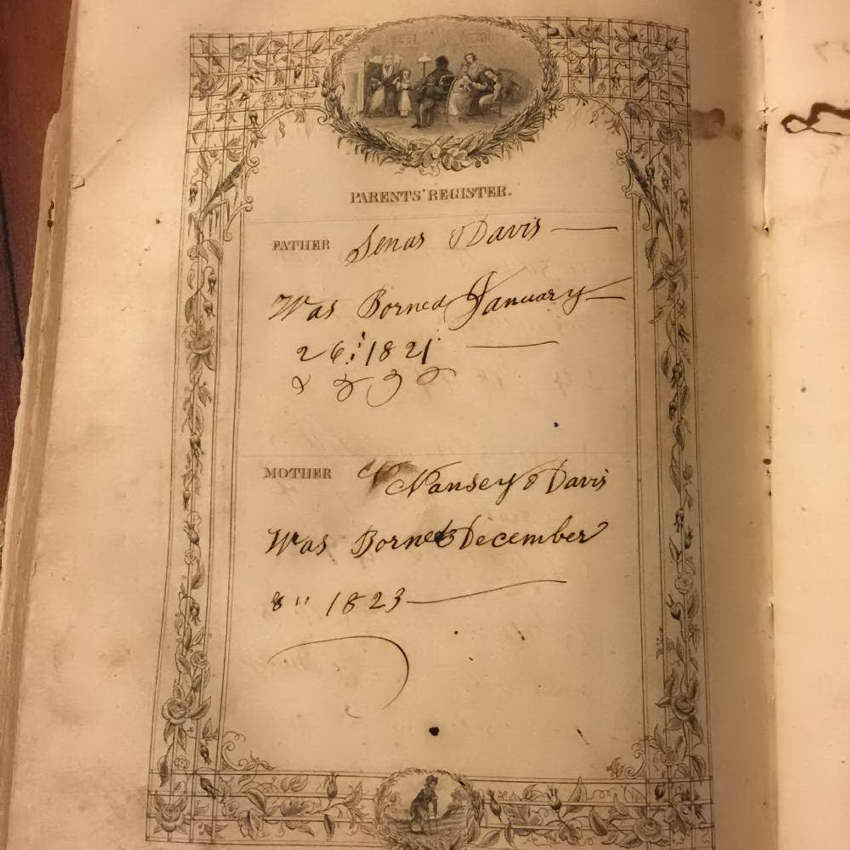 PARENTS' REGISTER.
FATHER Senas Davis
Was Borned January
26 1821
MOTHER Nansey Davis
Was Borned December
8" 1823